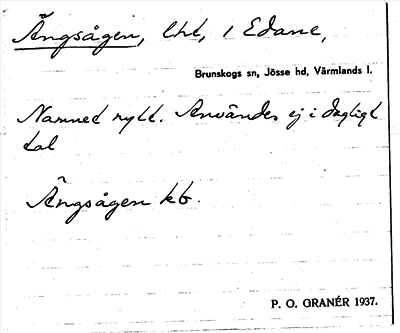 Ängsågen, lht, i Edane,
Brunskogs sn, Jösse hd, Värmlands l.
Namnet nytt. Användes ej i dagligt
tal
Ängsågen kb.
P. O. GRANÉR 1937.